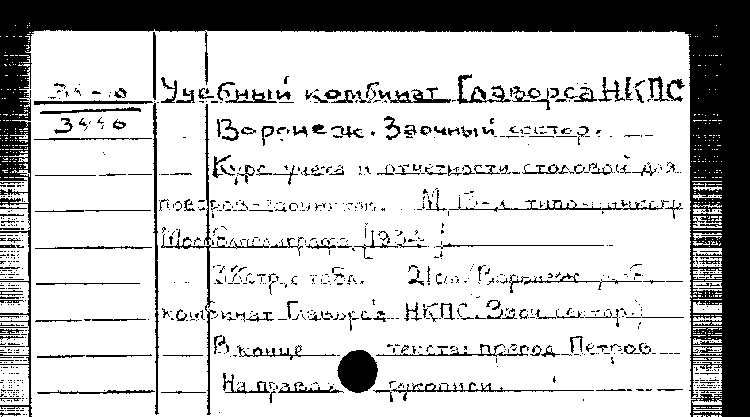 34-10
3440
Учебный комбинат Главорса НКПС
Воронеж. Заочный сектор.
Курс учета и отчетности столовой для
поваров-заочников. М, 15-я типо-цинкогр
Мособлполиграфа, [1934].
с табл. 21см. (Воронеж.
комбинат Главорса НКПС. Заоч. сектор)
В конце текста: препод Петров
На правах рукописи.